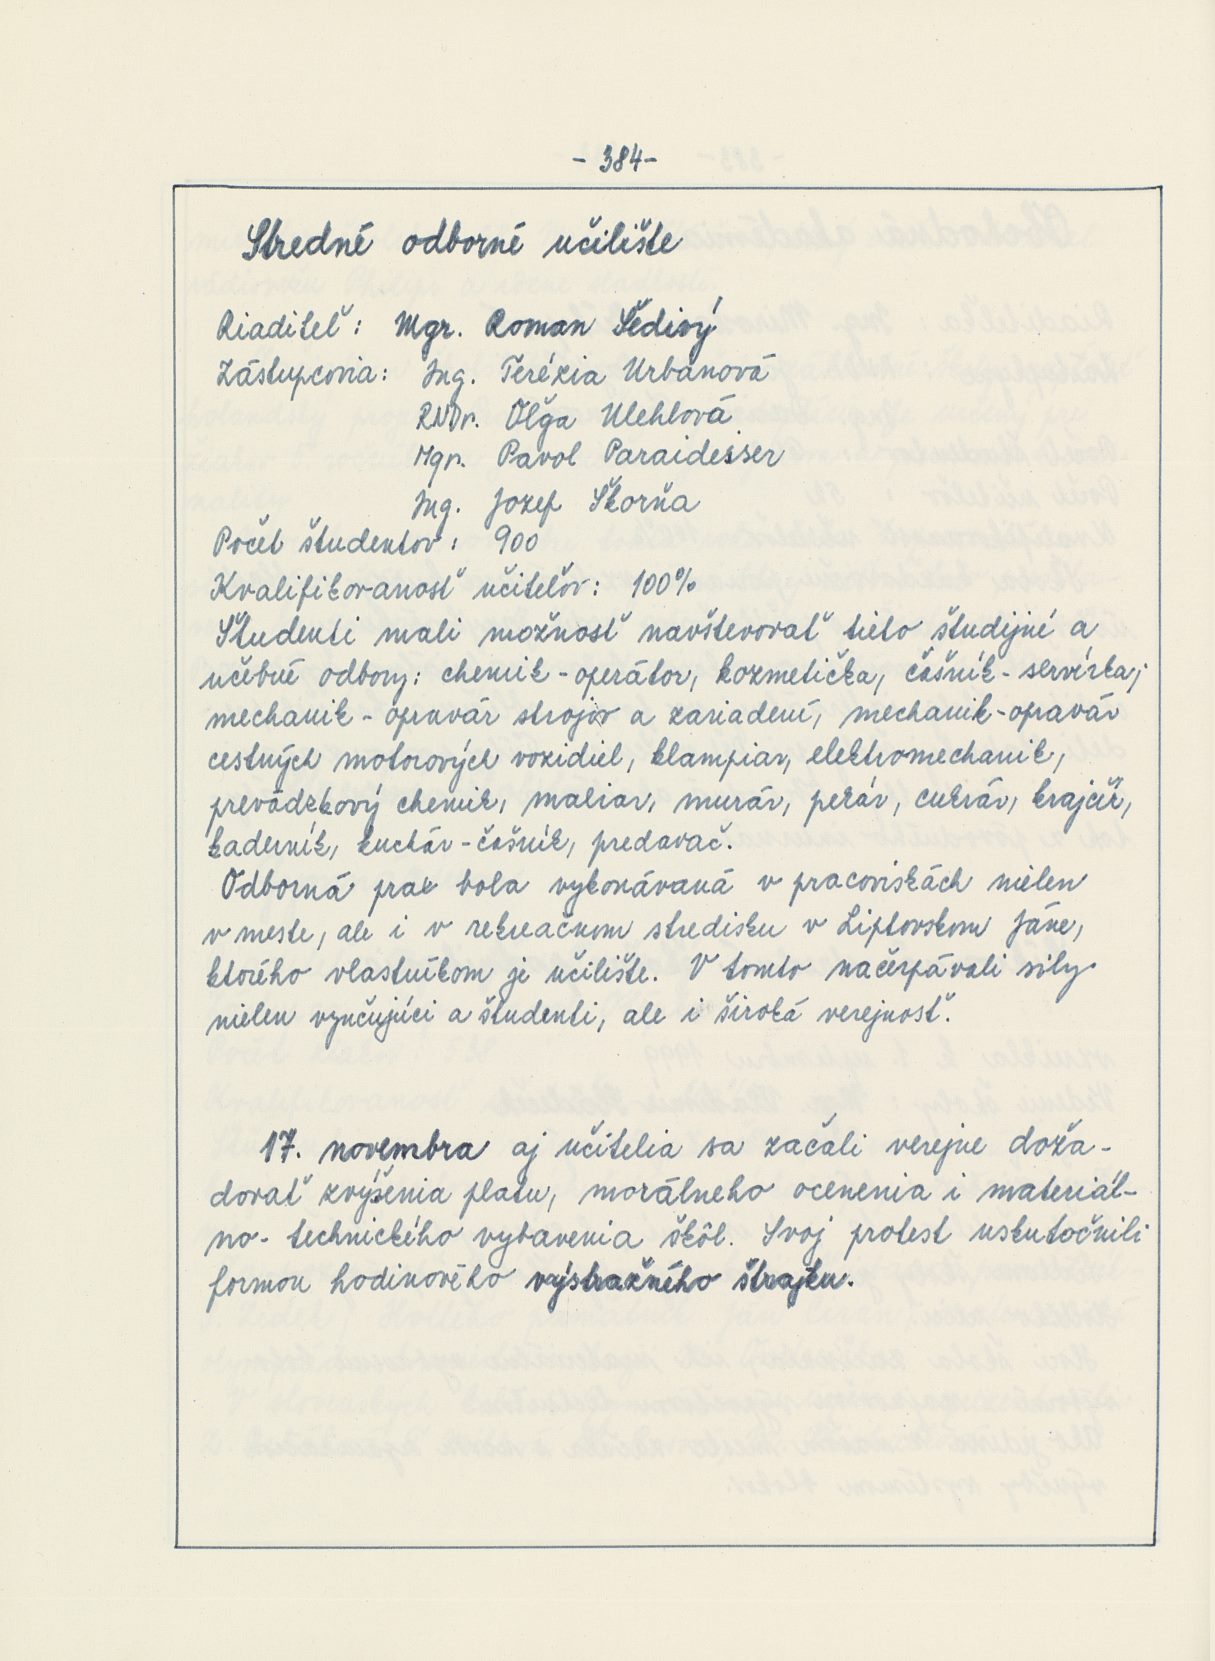 - 384-
Stredné odborné učilište
Riaditeľ: Mgr. Roman Šedivý
Zástupcovia: Ing. Terézia Urbanová
RNDr. Oľga Ulehlová
Mgr. Pavol Paraideiser
Ing. Jozef Škorňa
Počet študentov: 900
Kvalifikovanosť učiteľov: 100%
Študenti mali možnosť navštevovať tieto študijné a
učebné odbory: chemik - operátor, kozmetička, čašník - servírka,
mechanik - opravár strojov a zariadení, mechanik - opravár
cestných motorových vozidiel, klampiar, elektromechanik,
prevádzkový chemik, maliar, murár, pekár, cukrár, krajčír,
kaderník, kuchár - čašník, predavač.
Odborná prax bola vykonávaná v pracoviskách nielen
v meste, ale i v rekreačnom stredisku v Liptovskom Jáne,
ktorého vlastníkom je učilište. V tomto načerpávali sily
nielen vyučujúci a študenti, ale i široká verejnosť.
17. novembra aj učitelia sa začali verejne doža-
dovať zvýšenia platu, morálneho ocenenia i materiál-
no- technického vybavenia škôl. Svoj protest uskutočnili
formou hodinového výstražného štrajku.